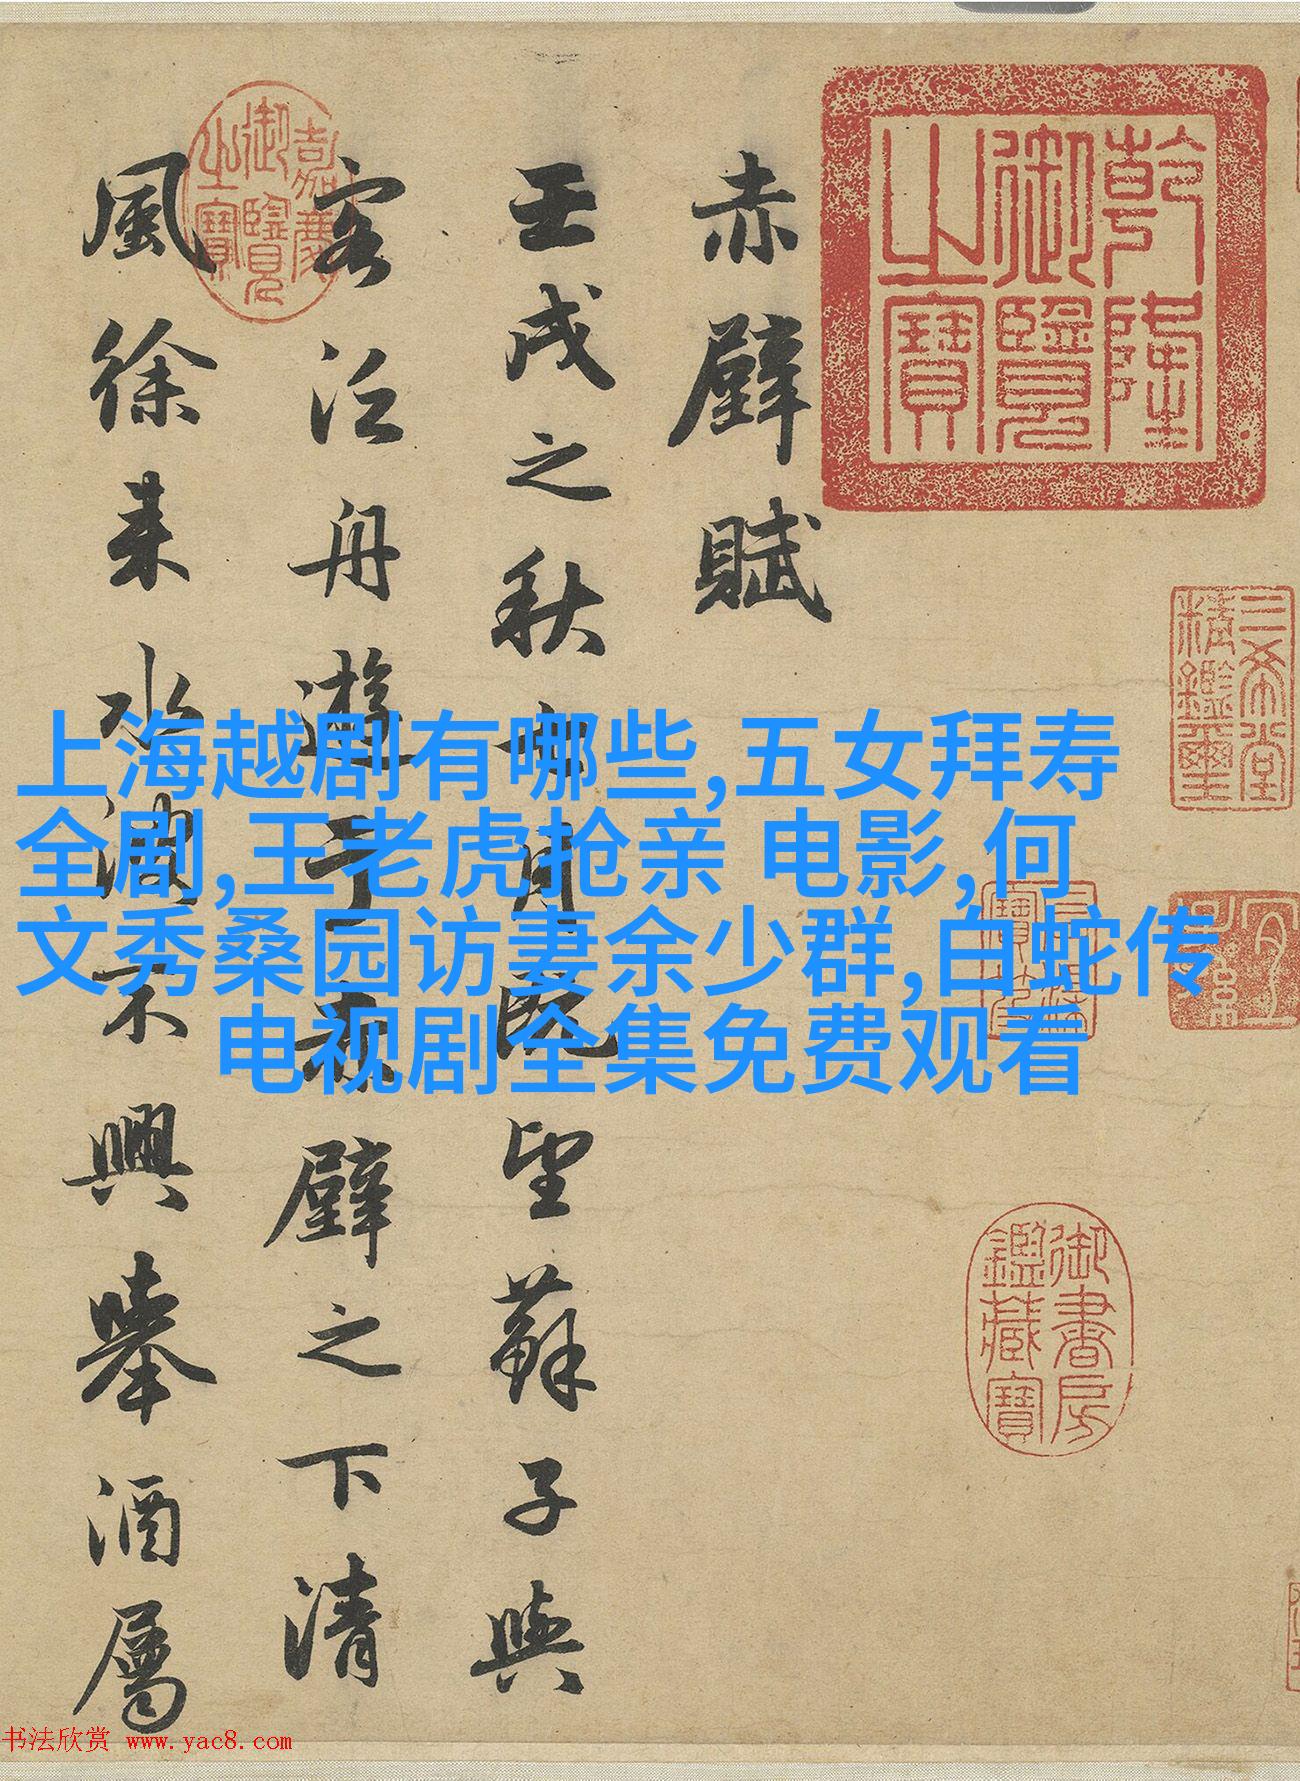 乾隆御覽之寶
三希堂精鑑璽
御書房鑑藏寶
赤壁賦
壬戌之秋七月既望蘇子與
客泛舟遊于赤壁之下清
嘉慶御覽之寶
風徐來水波不興舉酒屬
上海越剧有哪些,五女拜寿
全剧,王老虎抢亲 电影,何
文秀桑园访妻余少群,白蛇传
电视剧全集免费观看
书法欣赏 www.yac8.com